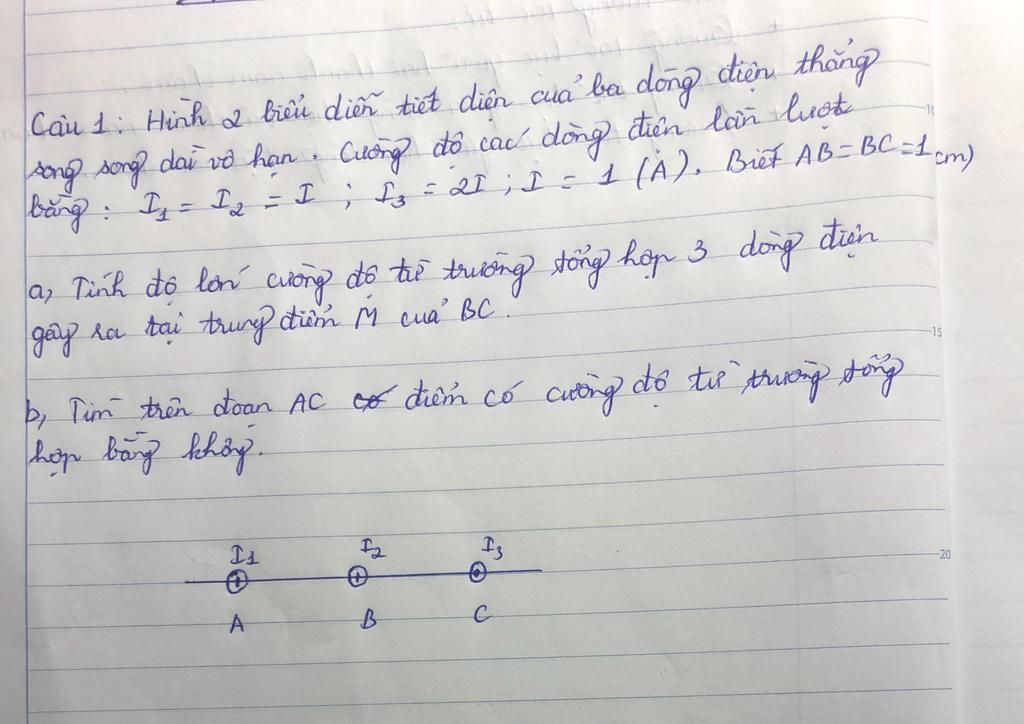 Câu 1: Hình 2 biểu diễn tiết diện của ba dòng điện thẳng
song song dài vô hạn. Cường độ các dòng điện lần lượt
bằng: I1 = I2 = I ; I3 = 2I ; I = 1 (A). Biết AB = BC = 1 cm)
a, Tính độ lớn cường độ từ trường tổng hợp 3 dòng điện
gây ra tại trung điểm M của BC.
15
b, Tìm trên đoạn AC điểm có cường độ từ trường tổng
hợp bằng không.
I1 I2 I3
20
A B C